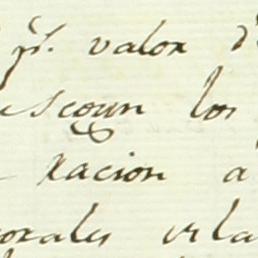 pr. valor d
segun los
racion a
orales vela